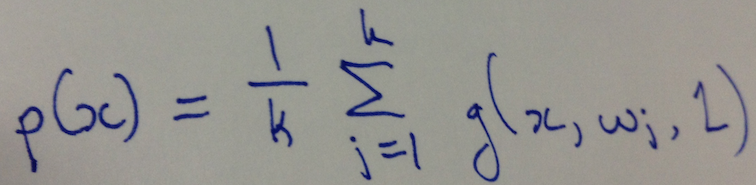 p(x) = \frac{1}{k} \sum_{j=1}^{k} g(x, w_j, 1)